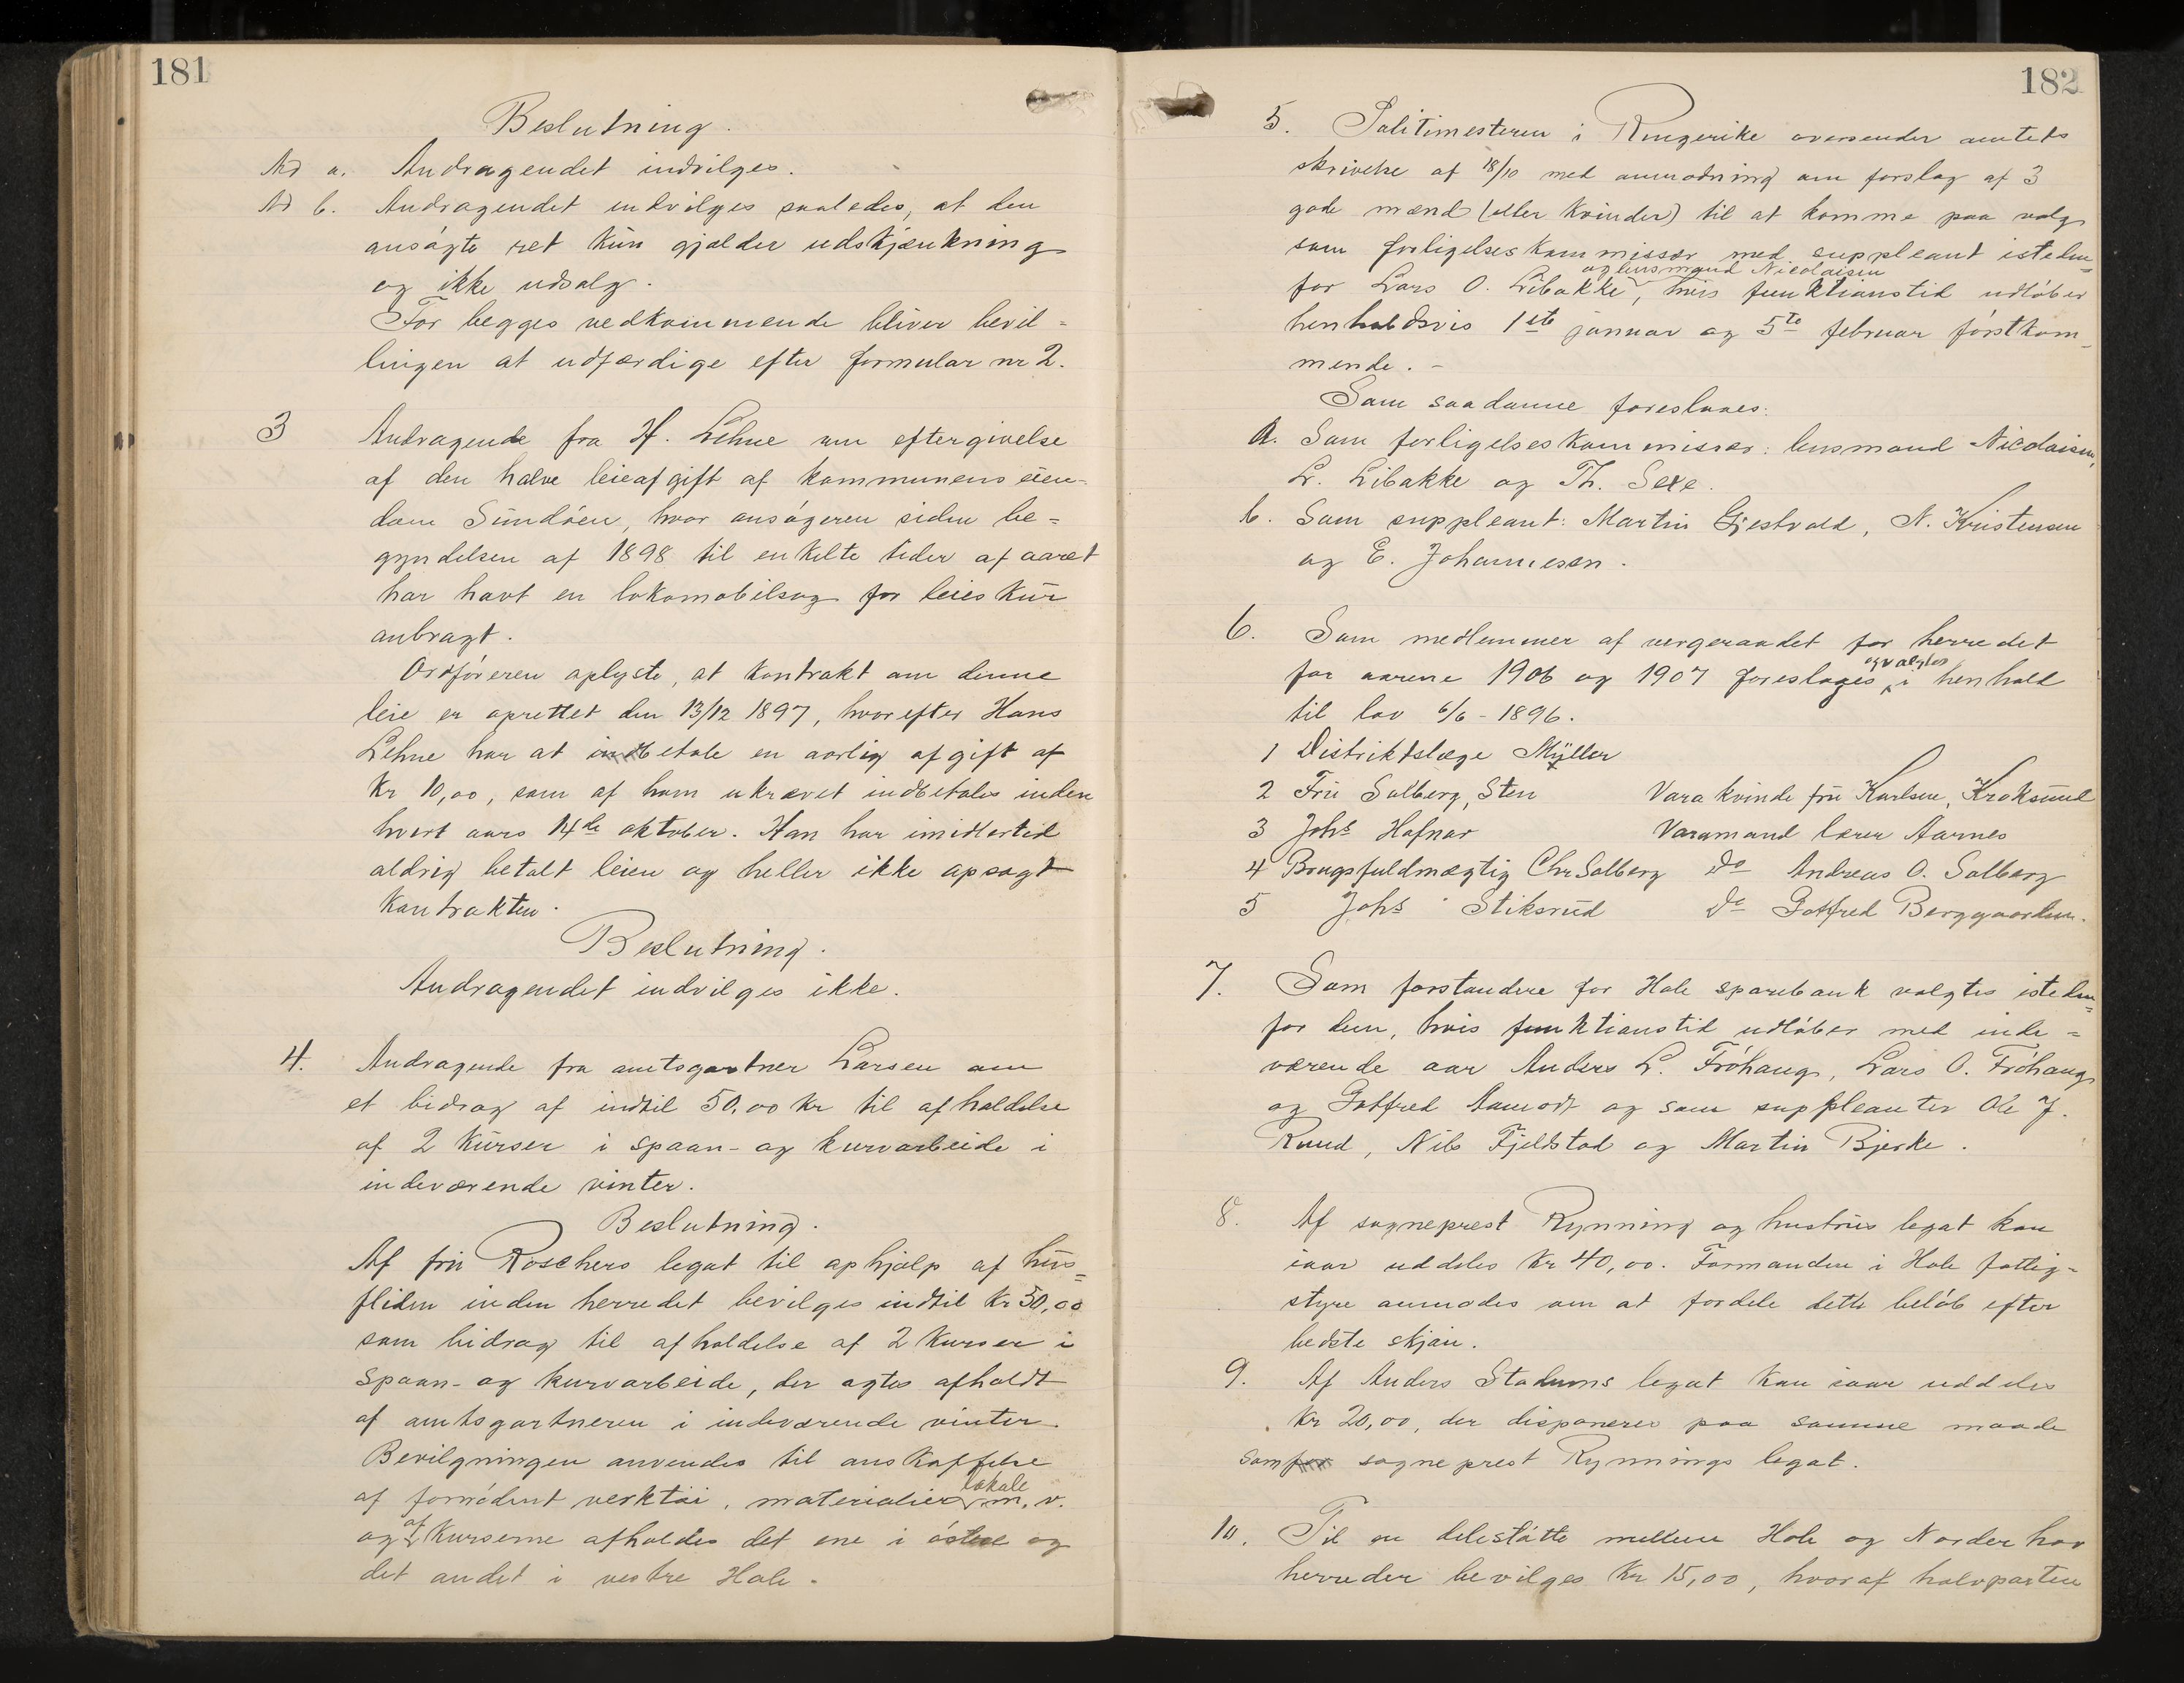 181
Beslutning.
Ad a. Andragendet indvilges.
Ad b. Andragendet indvilges saaledes, at den
ansøgte ret kun gjælder udskjænkning
og ikke udsalg.
For begges vedkommende bliver bevil=
lingen at udfærdige efter formular nr 2.
3 Andragende fra H. Lehne om eftergivelse
af den halve leieafgift af kommunens eien-
dom Sundøen, hvor ansøgeren siden be=
gyndelsen af 1898 til enkelte tider af aaret
har havt en lokomobilsag for leieskur
anbragt.
Ordføreren oplyste, at kontrakt om denne
leie er oprettet den 13/12 1897, hvorefter Hans
Lehne har at indbetale en aarlig afgift af
Kr 10,00, som af ham ukrævet indbetales inden
hvert aars 14de oktober. Han har imidlertid
aldrig betalt leien og heller ikke opsagt
Kontrakten.
Beslutning.
Andragendet indvilges ikke.
4. Andragende fra amtsgartner Larsen om
et bidrag af indtil 50,00 kr til afholdelse
af 2 kurser i spaan- og kurvarbeide i
indeværende vinter.
Beslutning.
Af fru Roschers legat til ophjælp af hus=
fliden inden herredet bevilges indtil Kr 50,00
som bidrag til afholdelse af 2 kurser i
spaan- og kurvarbeide, der agtes afholdt
af amtsgartneren i indeværende vinter.
Bevilgningen anvendes til anskaffelse
af fornødent verktøi, materialier lokale m. v.
og at kurserne afholdes det ene i østre og
det andet i vestre Hole.
182
5. Politimesteren i Ringerike oversender amtets
skrivelse af 18/10 med anmodning om forslag af 3
gode mænd (eller kvinder) til at komme paa valg
som forligelseskommissær med suppleant isteden=
og lensmand Nicolaisen
for Lars O. Libakke, hvis funktionstid udløber
henholdsvis 1ste januar og 5te februar førstkom-
mende. -
Som saadanne foreslaaes:
a. Som forligelseskommissær: lensmand Nicolaisen,
L. Libakke og Th. Sexe.
b. Som suppleant: Martin Gjestvold, N. Kristensen
og E. Johannesen.
6. Som medlemmer af vergeraadet for herredet
for aarene 1906 og 1907 foreslages og valgtes i henhold
til lov 6/6 - 1896.
1 Distriktslæge Müller
2 Fru Solberg, Sten Varakvinde fru Karlsen, Kroksund
3 Johs Hafnor Varamand lærer Aarnes
4 Brugsfuldmægtig Chr Solberg do Andreas O. Solberg
5 Johs Stiksrud do Gotfred Berggaarden.
7. Som forstandere for Hole sparebank valgtes isteden=
for dem, hvis funktionstid udløber med inde=
værende aar Anders L. Frøhaug, Lars O. Frøhaug
og Gotfred Aamodt og som suppleanter Ole J.
Ruud, Nils Fjeldstad og Martin Bjerke.
8. Af sogneprest Rynning og hustrus legat kan
iaar uddeles Kr 40,00. Formanden i Hole fattig-
styre anmodes om at fordele dette beløb efter
bedste skjøn.
9. Af Anders Stadums legat kan iaar uddeles
Kr 20,00, der disponeres paa samme maade
som sogneprest Rynnings legat.
10. Til en delestøtte mellem Hole og Norderhov
herreder bevilges Kr 15,00, hvoraf halvparten